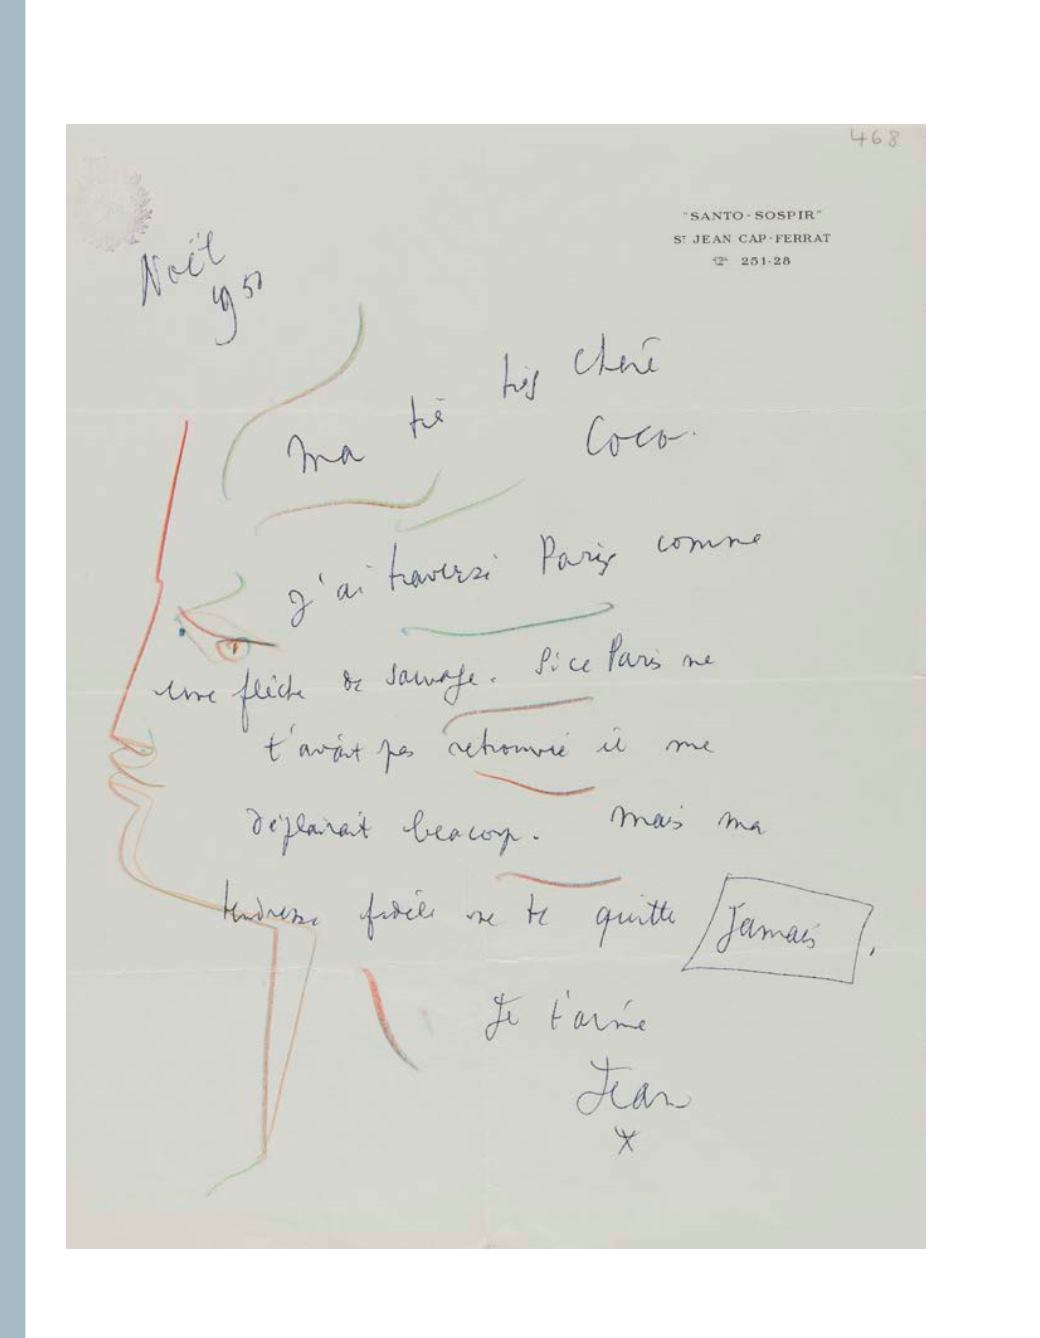 468
"SANTO-SOSPIR"
ST JEAN CAP-FERRAT
251-28
Noël
1950
Ma trè très cheré
Coco.
J'ai traversé Paris comme
une flèche de sauvage. Si ce Paris ne
t'avait pas retrouvée il me
déplairait beacoup. Mais ma
tendresse fidèle ne te quitte Jamais.
Je t'aime
Jean